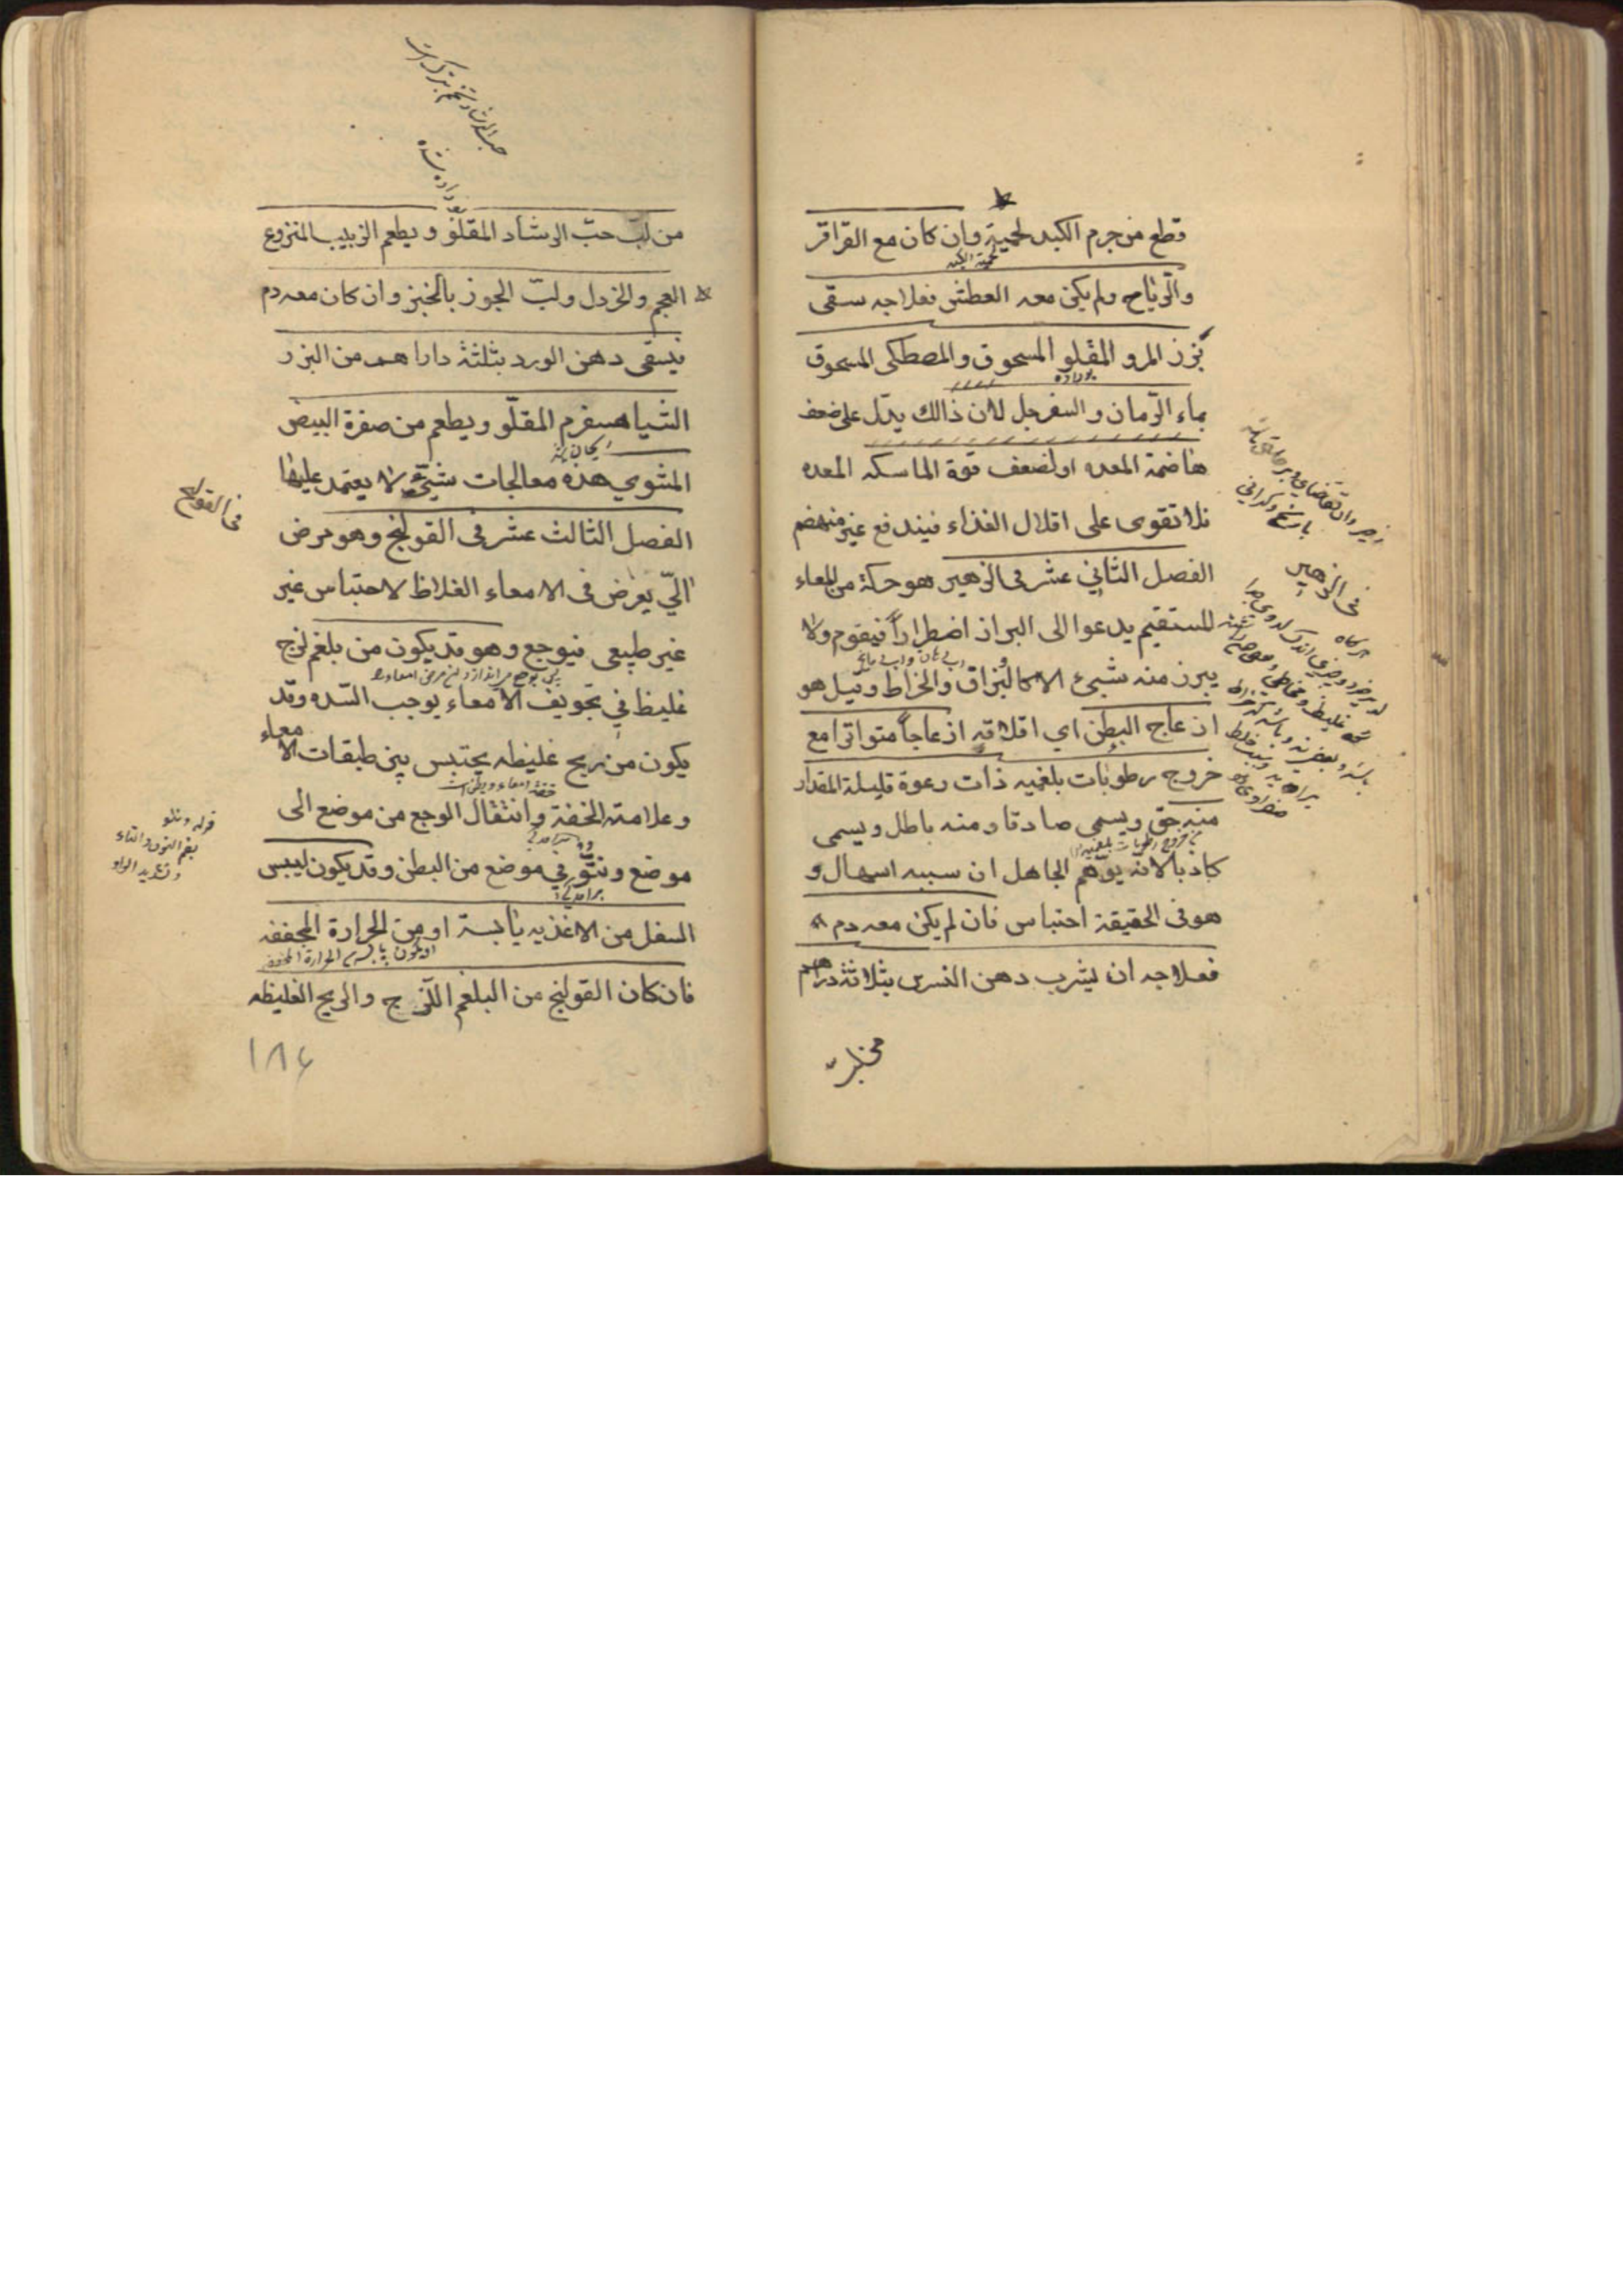 قطع من جرم الكبد لحمية وان كان مع القراقر
لحمية الكبد
والرّياح ولم يكن معه العطش فعلاجه سقى
بزر المرو المقلو المسحوق والمصطكى المسحوق
بماء الرّمان والسفرجل لان ذالك يدّل على ضعف
هاضمة المعده او لضعف قوة الماسكه المعده
فلا تقوى على اقلال الغذاء فيندفع غير منهضم
الفصل الثاني عشر فى الزهير هو حركة من المعاء
للمستقيم يدعوا الى البراز اضطراراً فيقوم ولا
يبرز منه شيئ الا كالبزاق والخراط وقيل هو
ازعاج البطن اي اقلاقه ازعاجاً متواترا مع
خروج رطوبات بلغميه ذات رعوة قليلة المقدار
منه حق ويسمى صادقا ومنه باطل ويسمى
كاذبا لانه يوّهم الجاهل ان سببه اسهال و
هو فى الحقيقة احتباس فان لم يكن معه دم
فعلاجه ان يشرب دهن النسرى بثلاثة دراهم
فى الزهير
من لبّ حبّ الرشاد المقلوّ ويطعم الزبيب المنزوع
العجم والخردل ولبّ الجوز بالخبز وان كان معه دم
فيسقى دهن الورد بثلثة داراهم من البزر
الشياهسفرم المقلّو ويطعم من صفرة البيض
المشوي هذه معالجات شيئ لا يعتمد عليها
الفصل الثالث عشر فى القولنج وهو مرض
الّي يعرض فى الامعاء الغلاظ لاحتباس غير
غير طبيعى فيوجع وهو قد يكون من بلغم لزج
غليظ في تجويف الامعاء يوجب السّده وقد
يكون من ريح غليظه يحتبس بين طبقات الامعاء
وعلامته الخفة وانتقال الوجع من موضع الى
موضع ونتوّ في موضع من البطن وقد يكون ليبس
السفل من الاغذيه يابسة او من الحرارة المجففه
فان كان القولنج من البلغم اللّزج والريح الغليظه
فى القولنج
قوله ونتو
بضم النون والتاء
وتشديد الواو
١٨٤